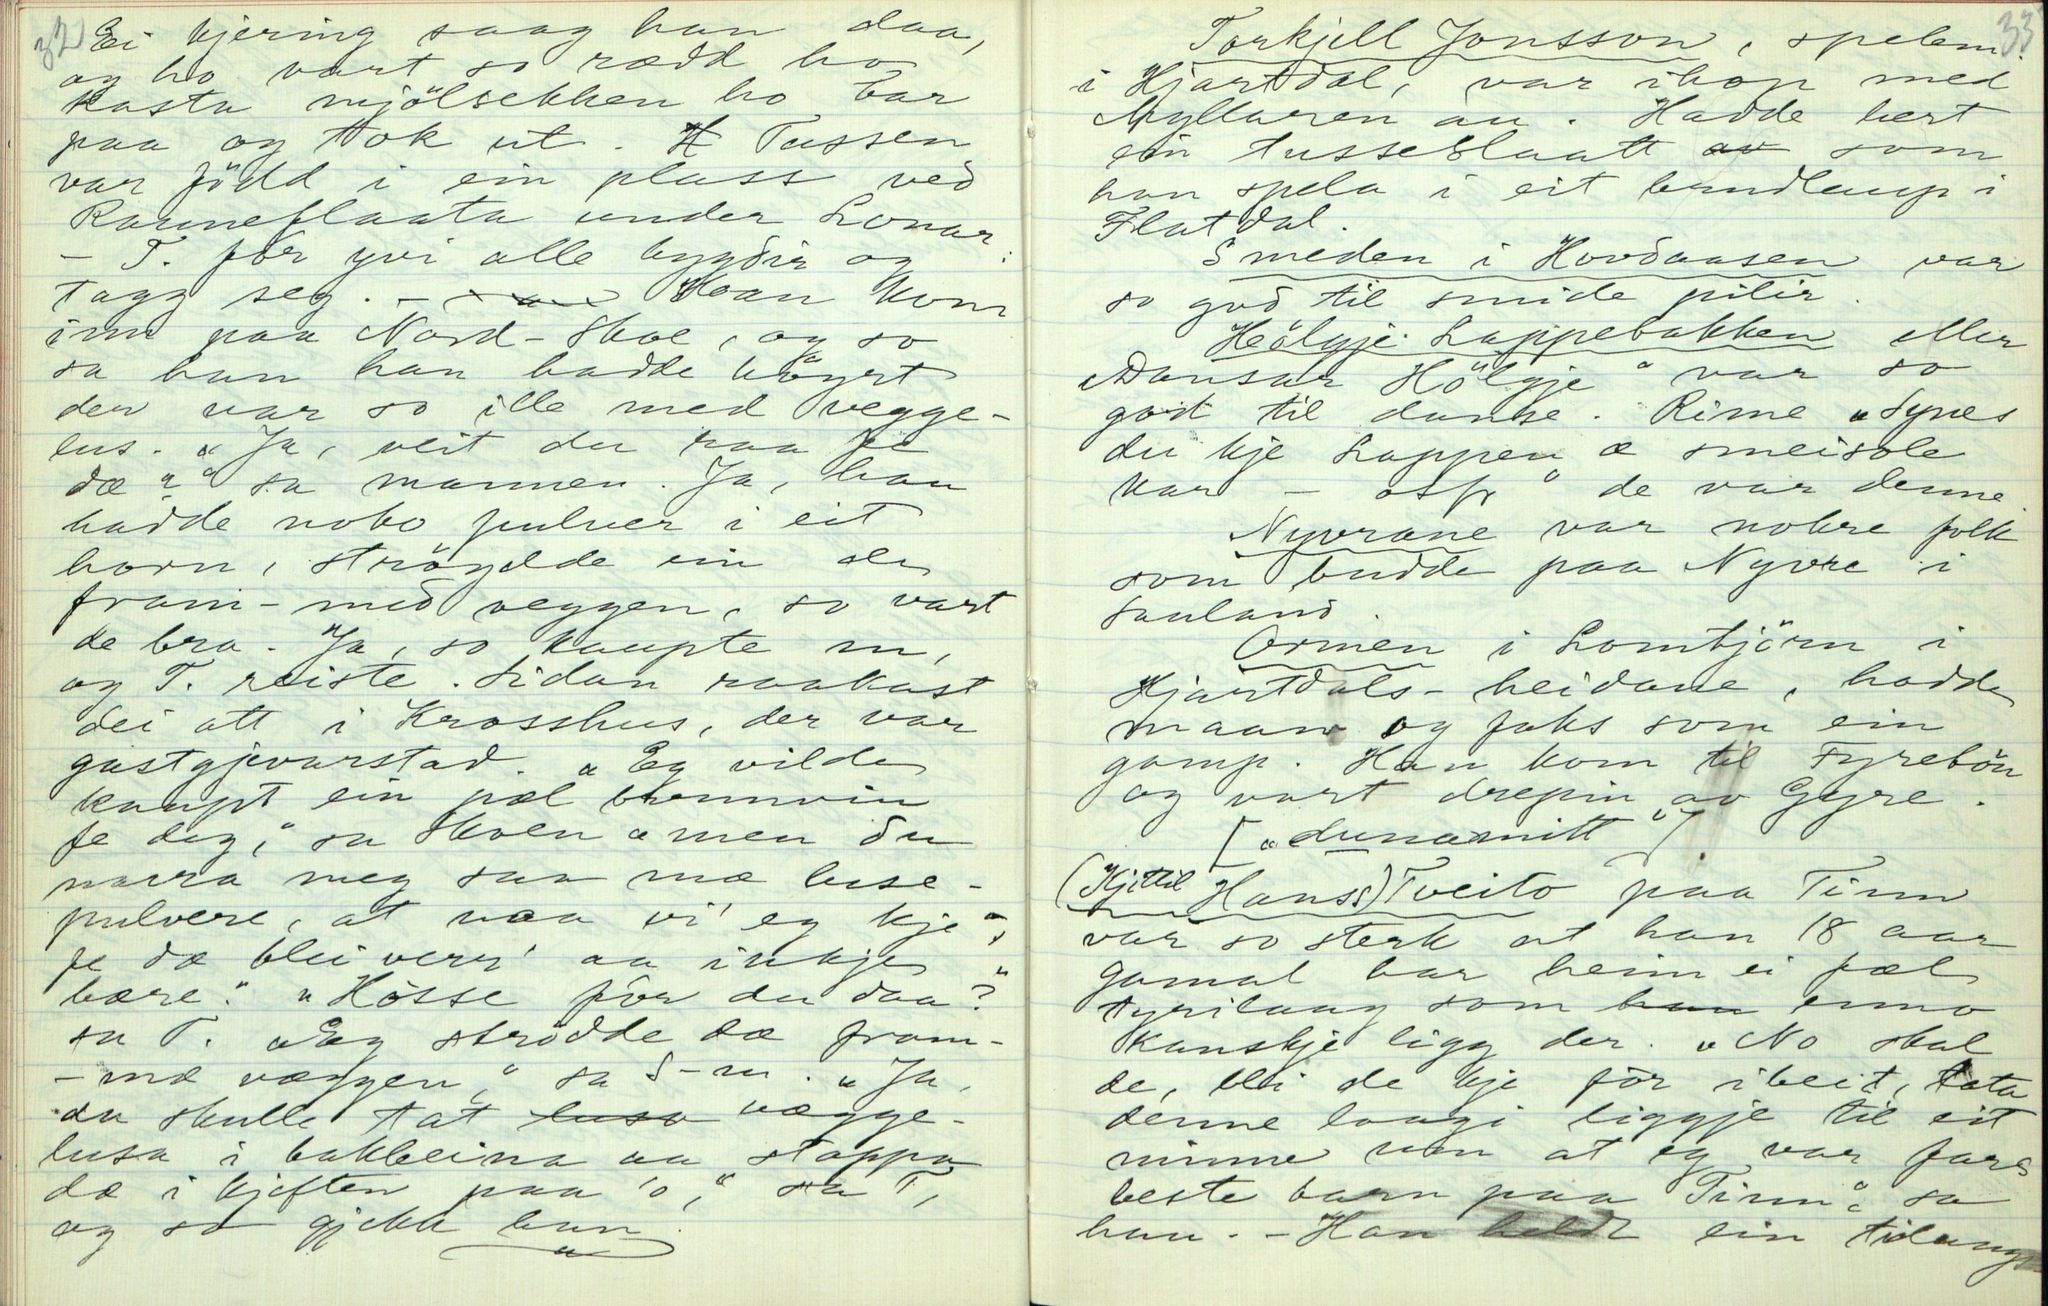 32
Ei kjering saag han daa,
og ho vart so rædd ho
kasta mjölsekken ho bar
paa og tok ut. Tussen
var född i ein plass ved
Ramneflaata under Lonar.
– T. fór yvi alle bygdir og
tagg seg. – Han kom
inn paa Nord-Skoe, og so
sa han han hadde höyrt
der var so ille med vegge-
lus. "Ja, veit du raa fe
dæ?" sa mannen. Ja, han
hadde noko pulver i eit
horn, ströydde ein de
fram-med veggen, so vart
de bra. Ja, so kaupte m,
og T. reiste. Sidan raakast
dei att i Krosshus, der var
gastgjevarstad. "Eg vilde
kaupt ein pæl brennvin
fe deg," sa Skoen "men du
narra meg saa mæ luse-
pulvere, at naa vi' eg kje,
fe dæ blei verr' aa inkje
bære." "Hósse fór du daa?"
sa T. "Eg strödde dæ fram-
-mæ væggen," sa S-n. "Ja,
du skulle tat lusa vægge-
lusa i bakbeina aa stappa
dæ i kjeften paa 'o," sa T,
og so gjekk han.
33
Torkjell Jonsson, spelem.
i Hjartdal, var ihop med
Myllaren au. Hadde lert
ein tusseslaatt av som
han spela i eit brudlaup i
Flatdal.
Smeden i Hovdaasen var
so god til smide pilir.
Hölgje Lappebakken eller
"Dansar Hölgje" var so
god til danse. Rime "Synes
du kje Lappen æ smeisole
kar – osfr" de var denne.
Nyvrane var nokre folk
som budde paa Nyvre i
Sauland.
Ormen i Lomtjörn i
Hjartdals-heidane, hadde
maan og faks som ein
gamp. Han kom til Fyrebön
og vart drepin av Gyre.
["dunamitt"]
(Kjittil Hanss) Tveito paa Tinn
var so sterk at han 18 aar
gamal bar heim ei fæl
tyrilaag som han enno
kanskje ligg der. "No skal
de, bli de kje för ibeit, lata
denne laagi liggje til eit
minne um at eg var fars
beste barn paa Tinn", sa
han. – Han heldt ein tidang